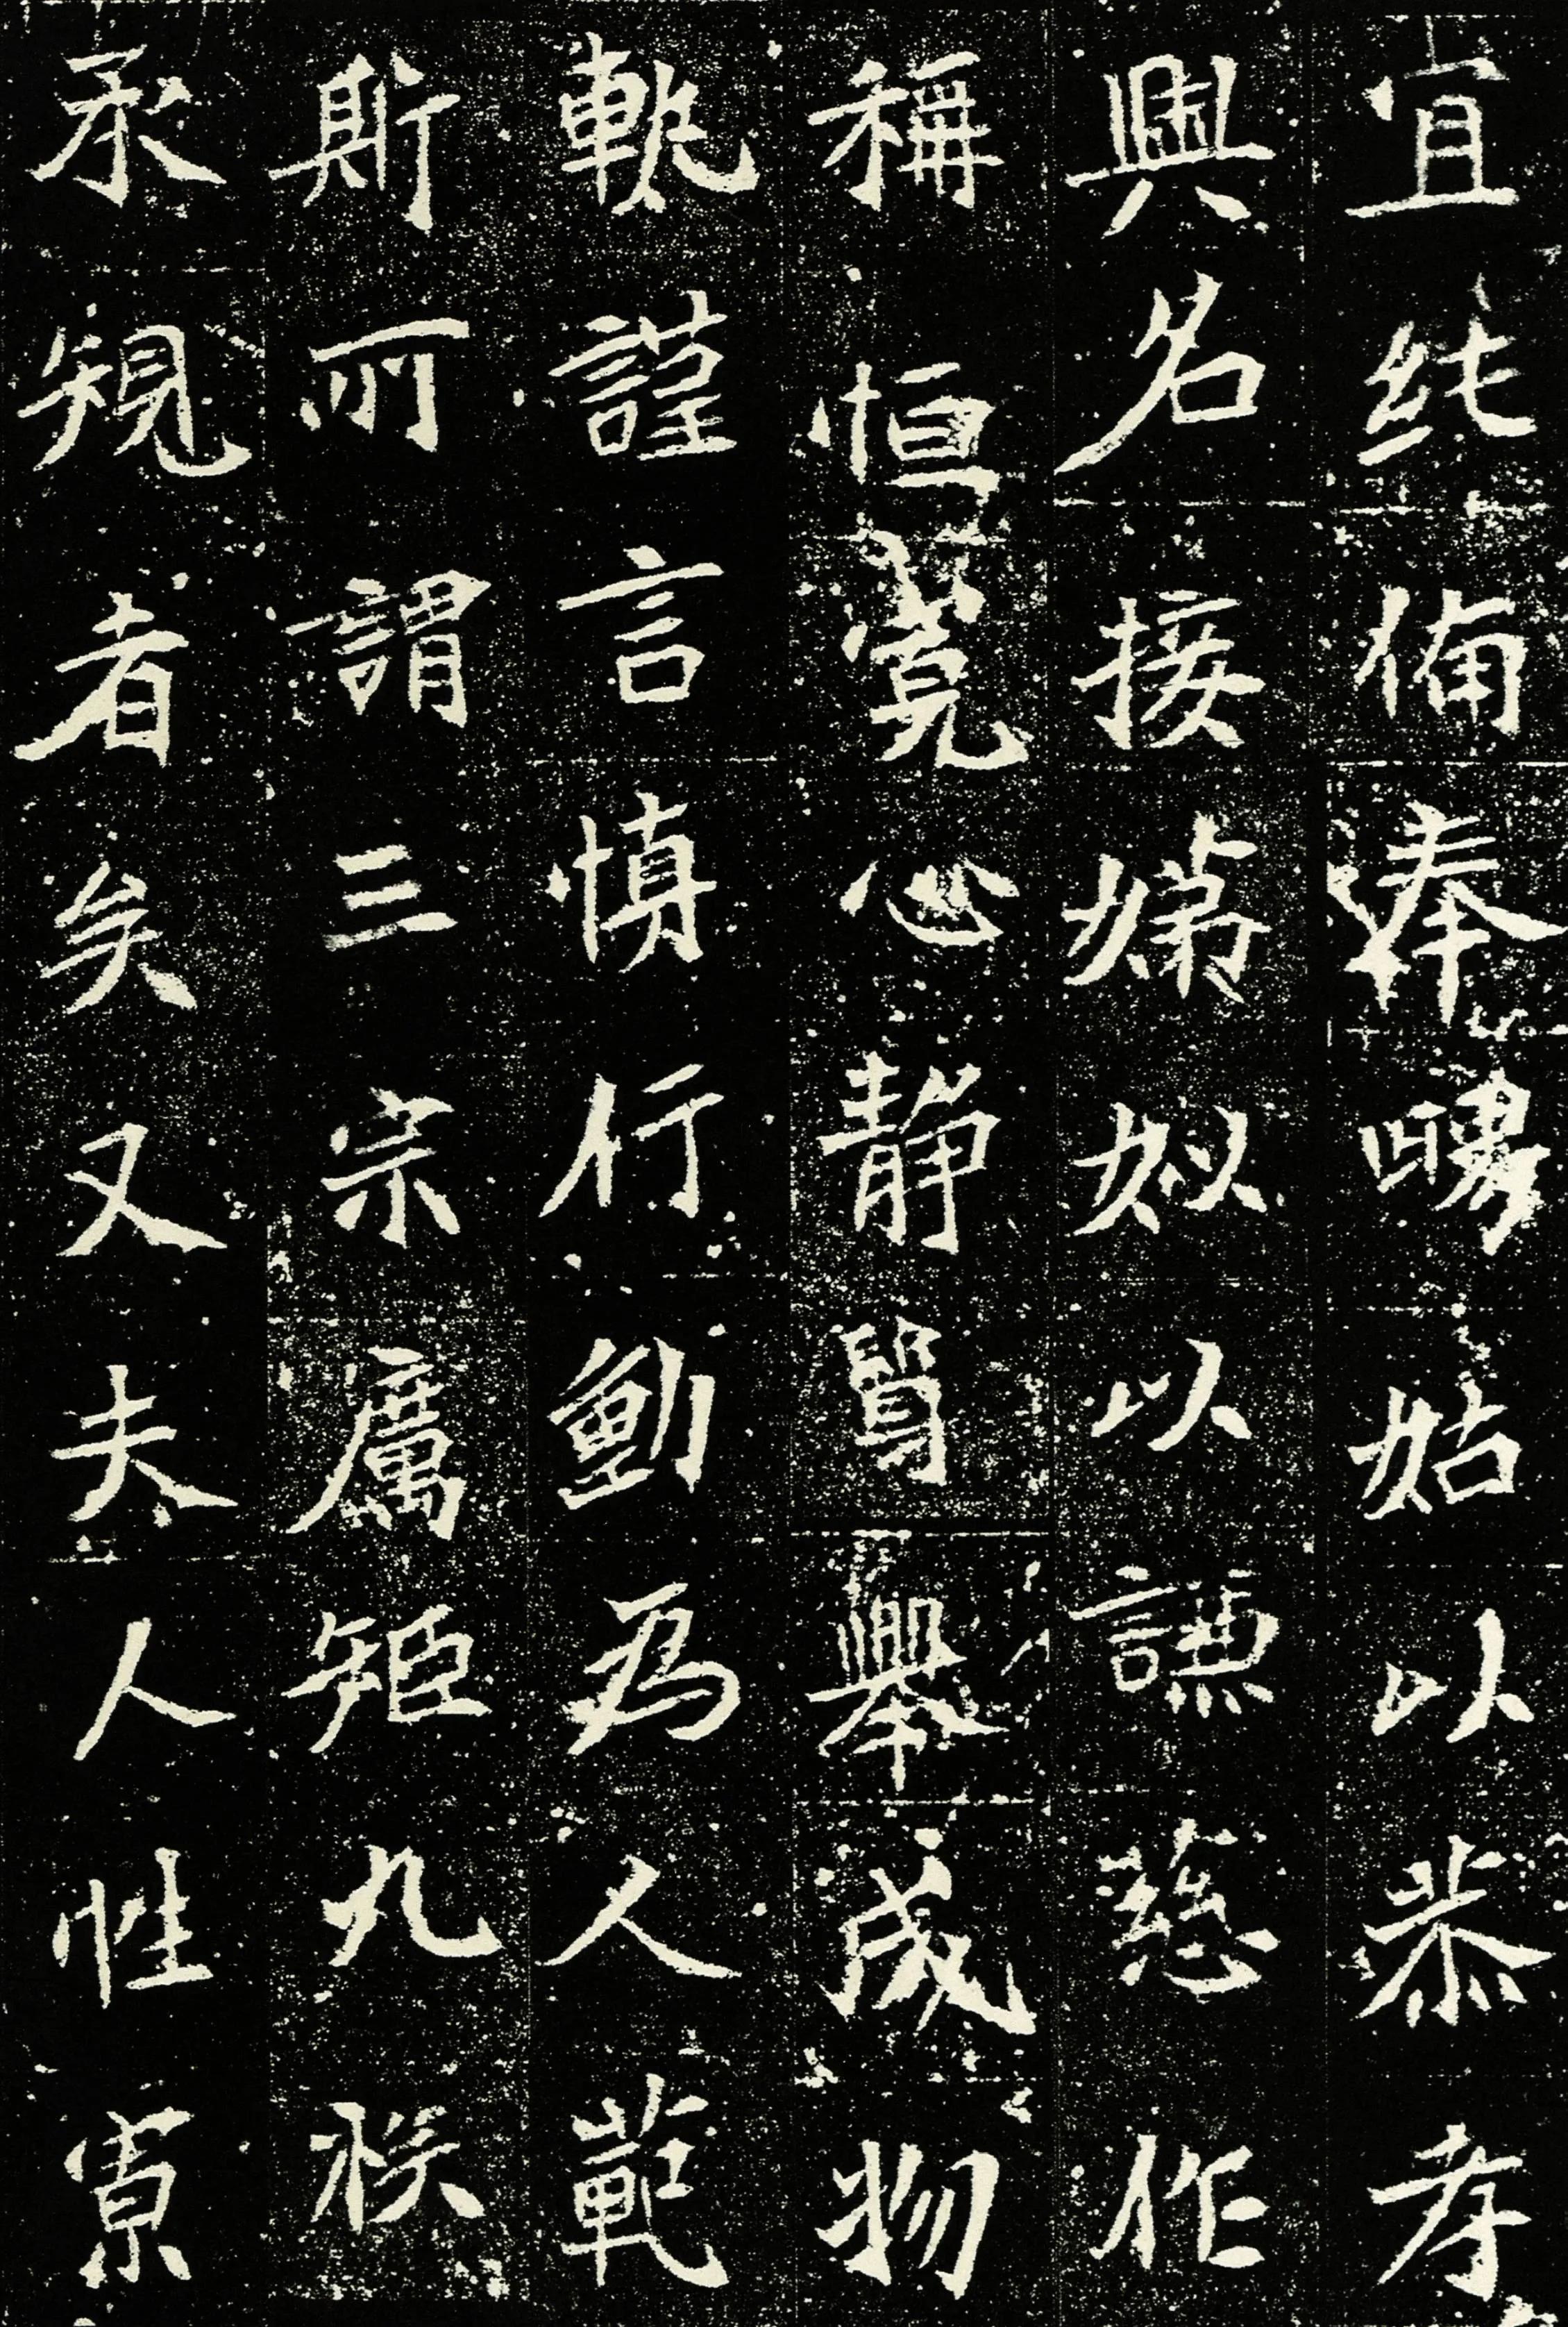 宜純備奉舅姑以恭孝
興名接娣姒以謙慈作
稱恒寬心靜質舉成物
軌謹言慎行動為人範
斯所謂三宗厲矩九族
承規者矣又夫人性寡